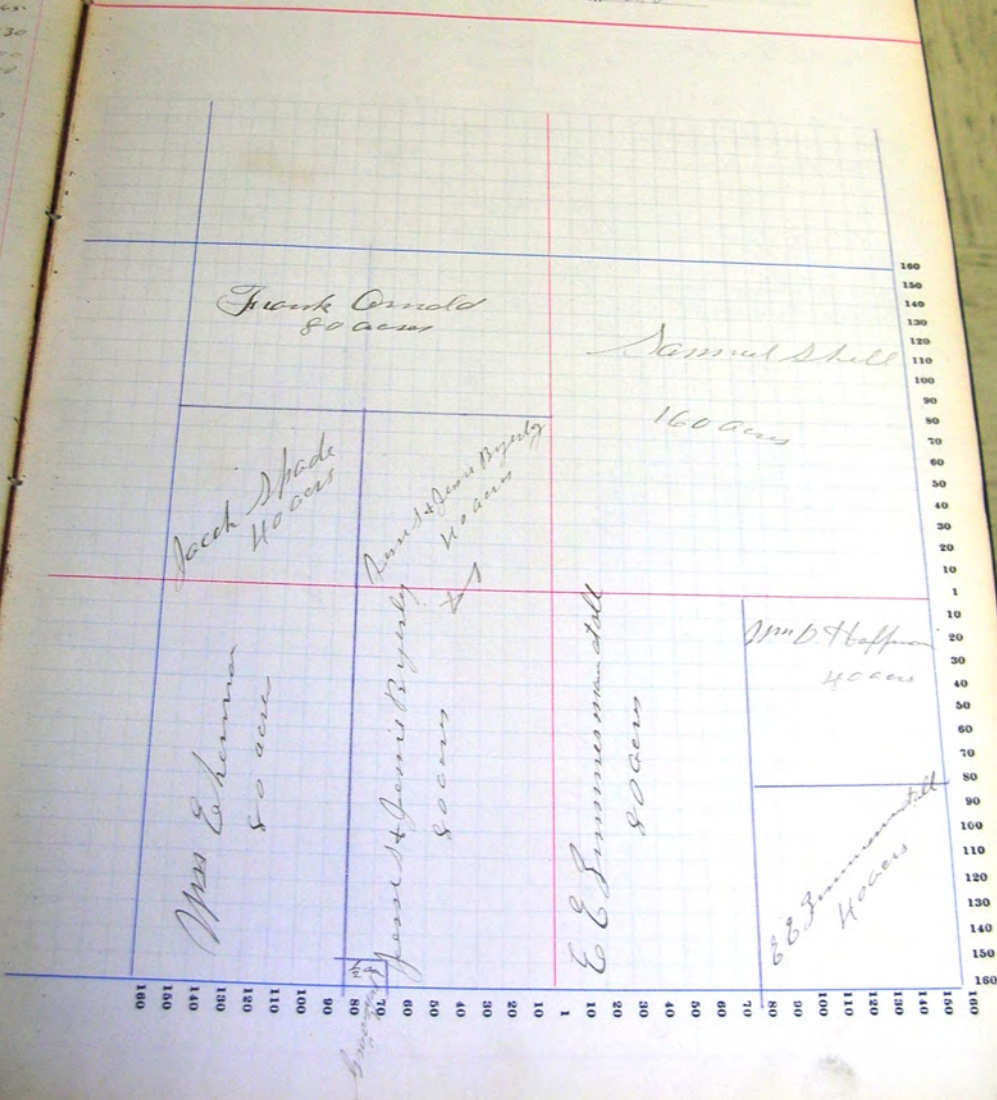 Frank Arnold
80 acres
Samuel Shell
160 acres
Jacob Spade
40 acrs
& Jessie Byerly
40 acrs
Wm D. Hoffman
40 acrs
Mrs Eherman
80 acres
& Jennie Byerly
80 acrs
E E Zimmermantell
80 Acrs
E E
40 Acers
1/2 ac
160
150
140
130
120
110
100
90
80
70
60
50
40
30
20
10
1
10
20
30
40
50
60
70
80
90
100
110
120
130
140
150
160
160 150 140 130 120 110 100 90 80 70 60 50 40 30 20 10 1 10 20 30 40 50 60 70 80 90 100 110 120 130 140 150 160